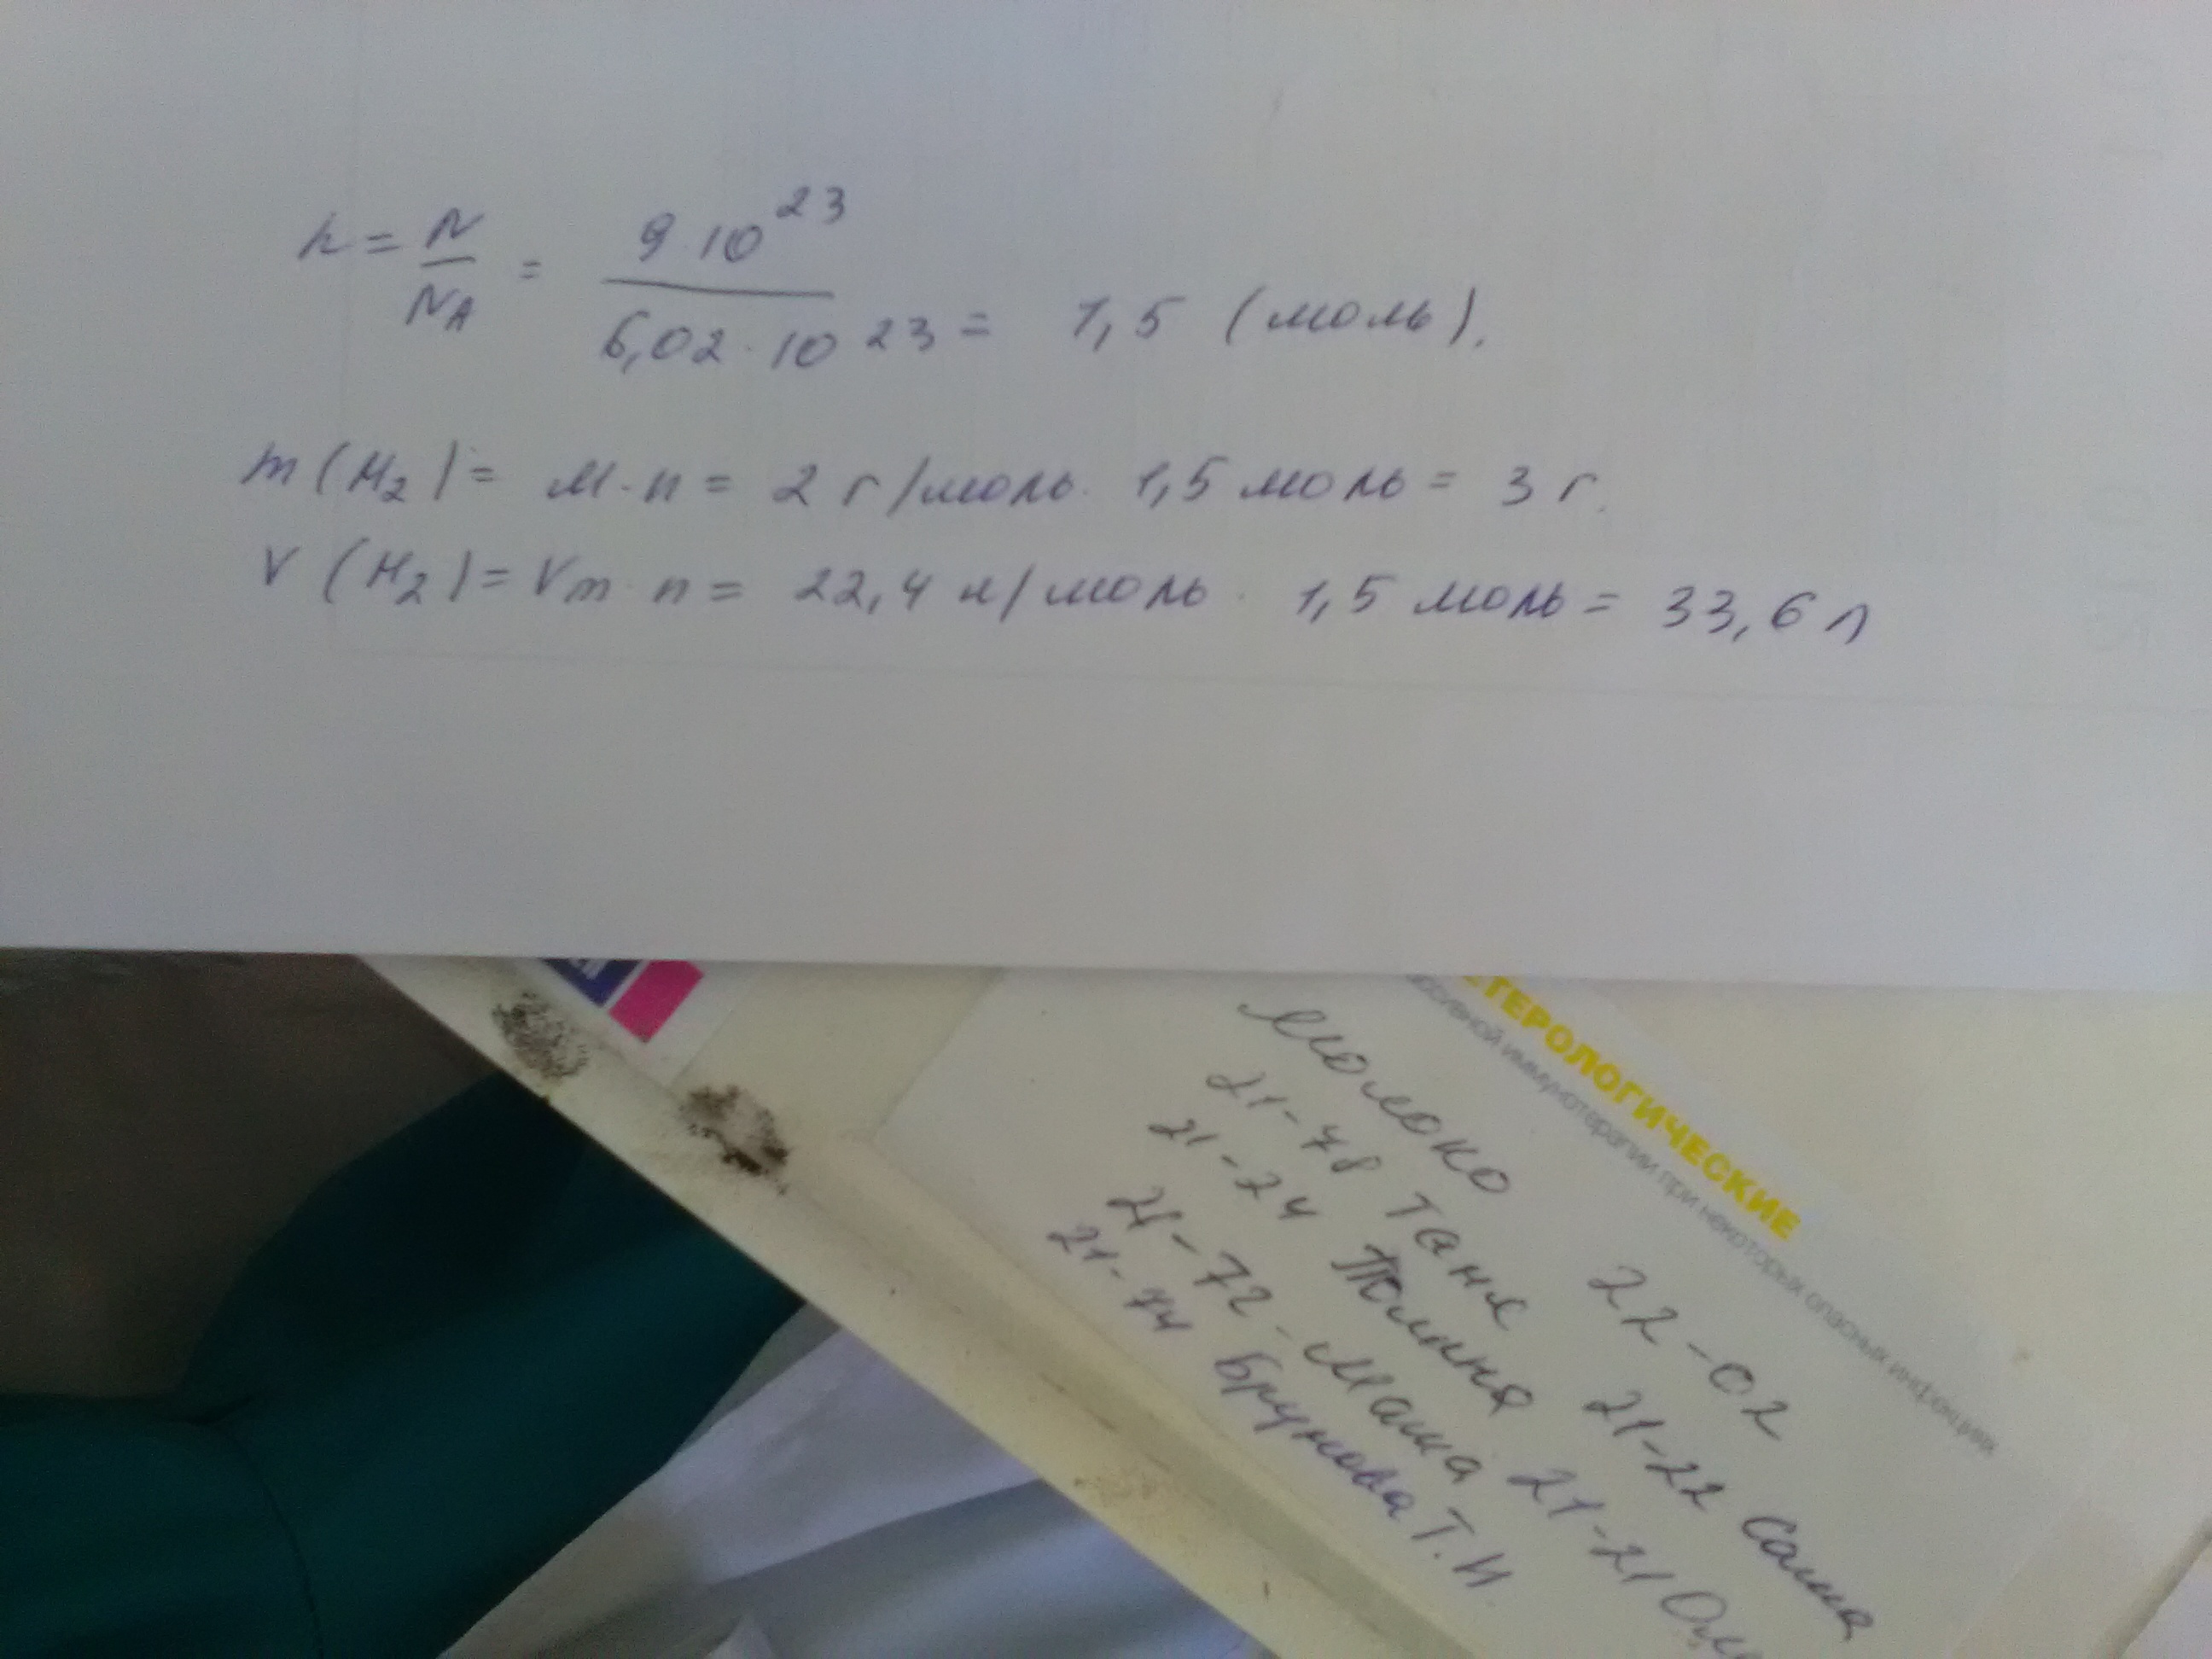 n = N/NA = 9·10²³/6,02·10²³ = 1,5 (моль).
m(H₂) = M·n = 2 г/моль · 1,5 моль = 3 г.
V(H₂) = Vm·n = 22,4 л/моль · 1,5 моль = 33,6 л
ТЕРОЛОГИЧЕСКИЕ
иммунотерапии при некоторых опасных инфекциях
молоко 22-02
21-78 Таня 21-22 Саша
21-24 21-21
21-72 - Маша
21-74 Брунова Т.И.